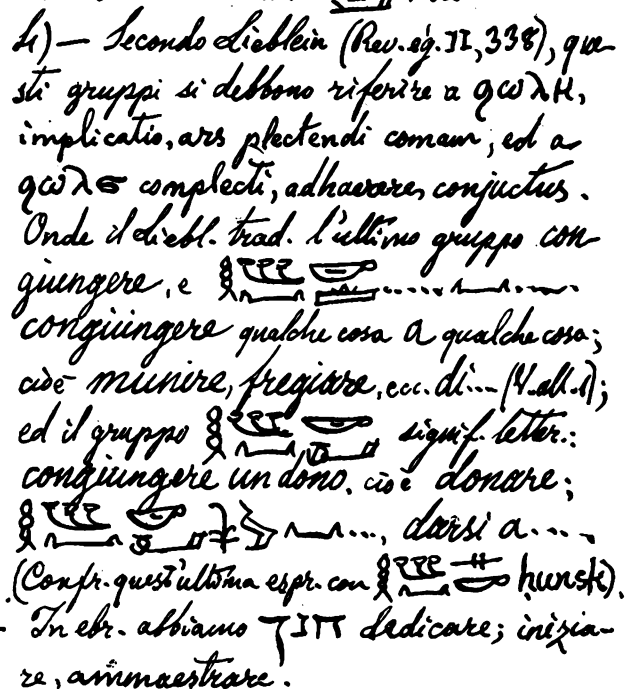 4) — Secondo Lieblein (Rev. ég. II, 338), que-
sti gruppi si debbono riferire a ϥωλⲕ,
implicatio, ars plectendi comam, ed a
ϥωλϭ complecti, adhaerare, conjuctus.
Onde il Liebl. trad. l'ultimo gruppo con
giungere, e ..... .....
congiungere qualche cosa a qualche cosa;
cioè munire, fregiare, ecc. di... (V. all. 1);
ed il gruppo signif. letter.:
congiungere un dono, cioè donare;
..., darsi a....
(Confr. quest'ultima espr. con hunsk).
In ebr. abbiamo חנך dedicare; inizia-
re, ammaestrare.